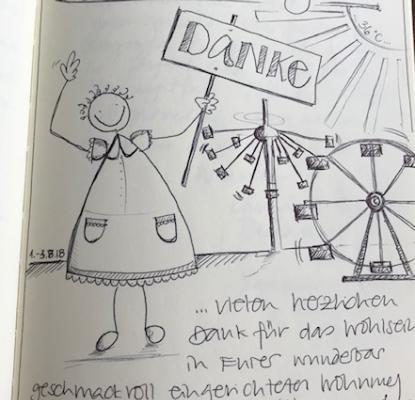 36°C...
DANKE
1.-3.8.18
... vielen herzlichen
Dank für das Wohlsein
in Eurer wunderbar
geschmackvoll eingerichteten Wohnung